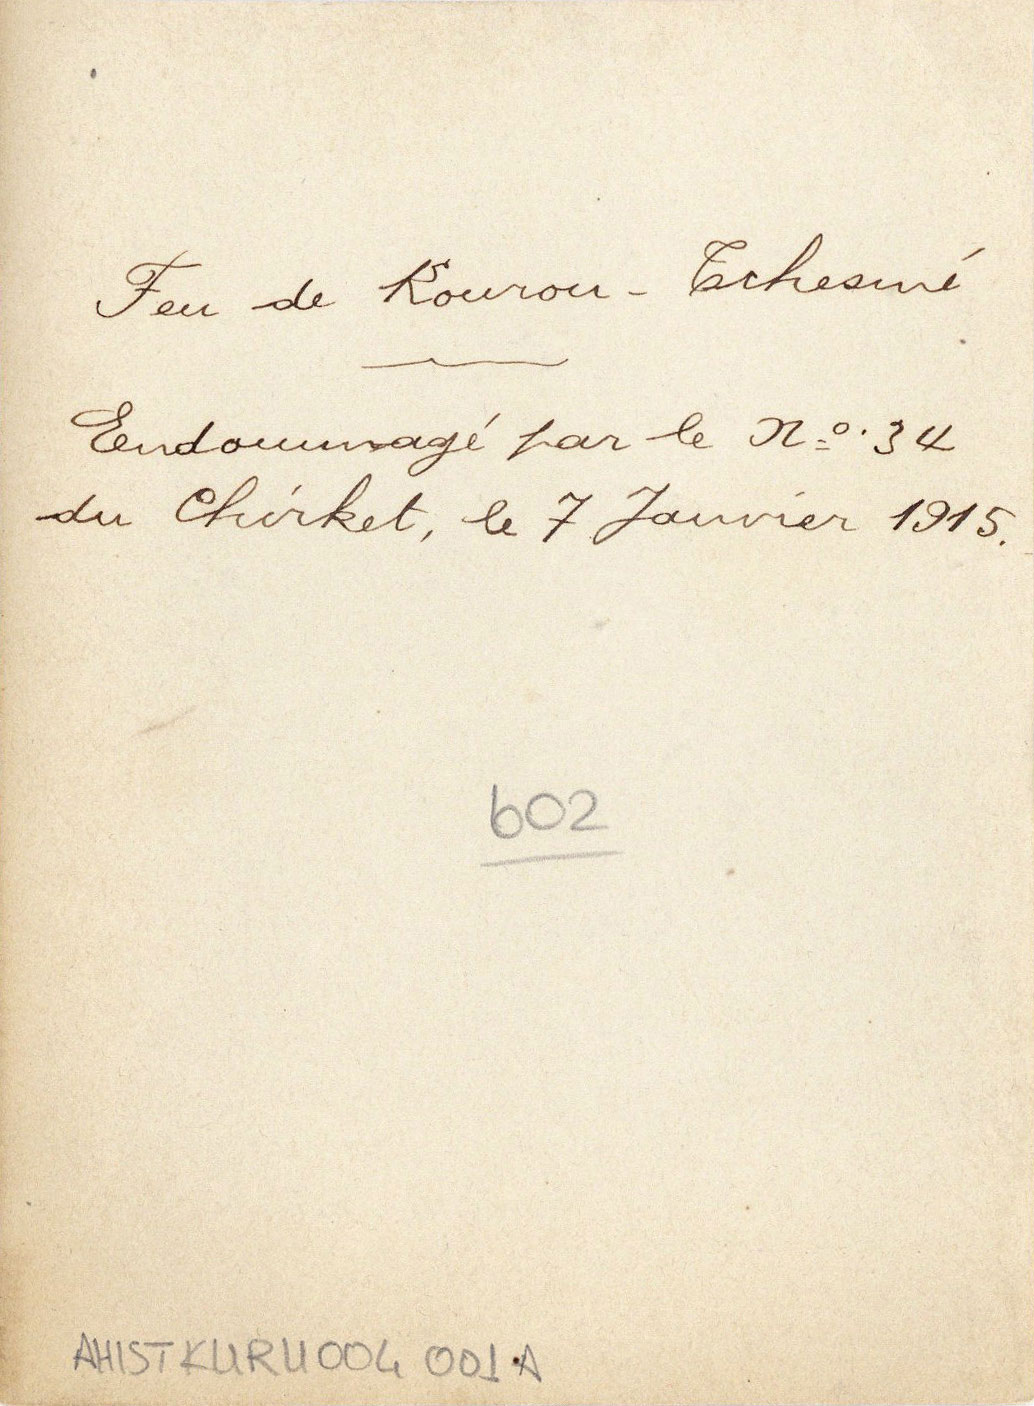 Feu de Kourou-Tchesmé
Endommagé par le No. 34
du Chirket, le 7 Janvier 1915.
602
AHISTKURU004 001A